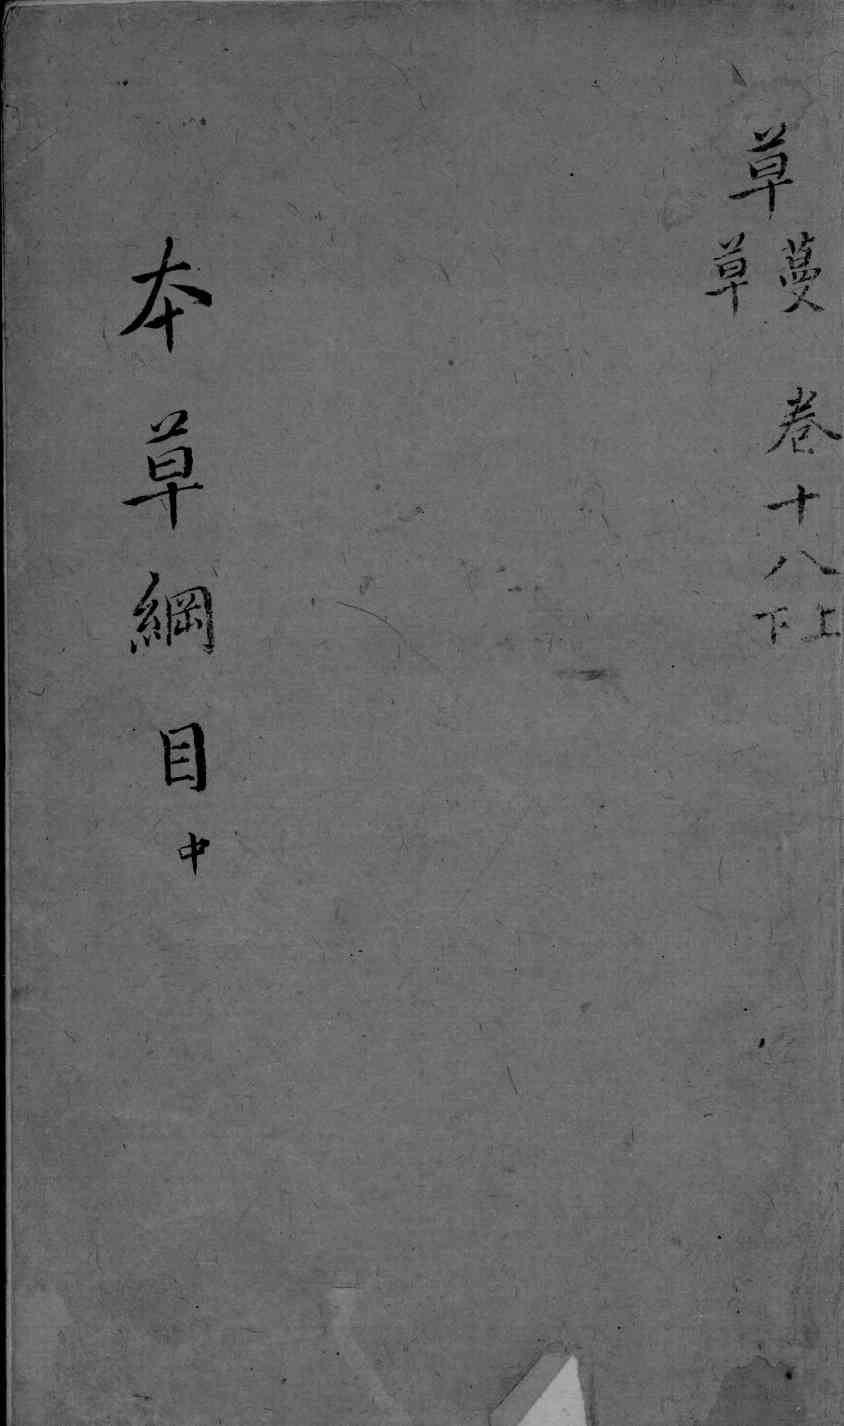 草
蔓草
卷十八上下
本草綱目中